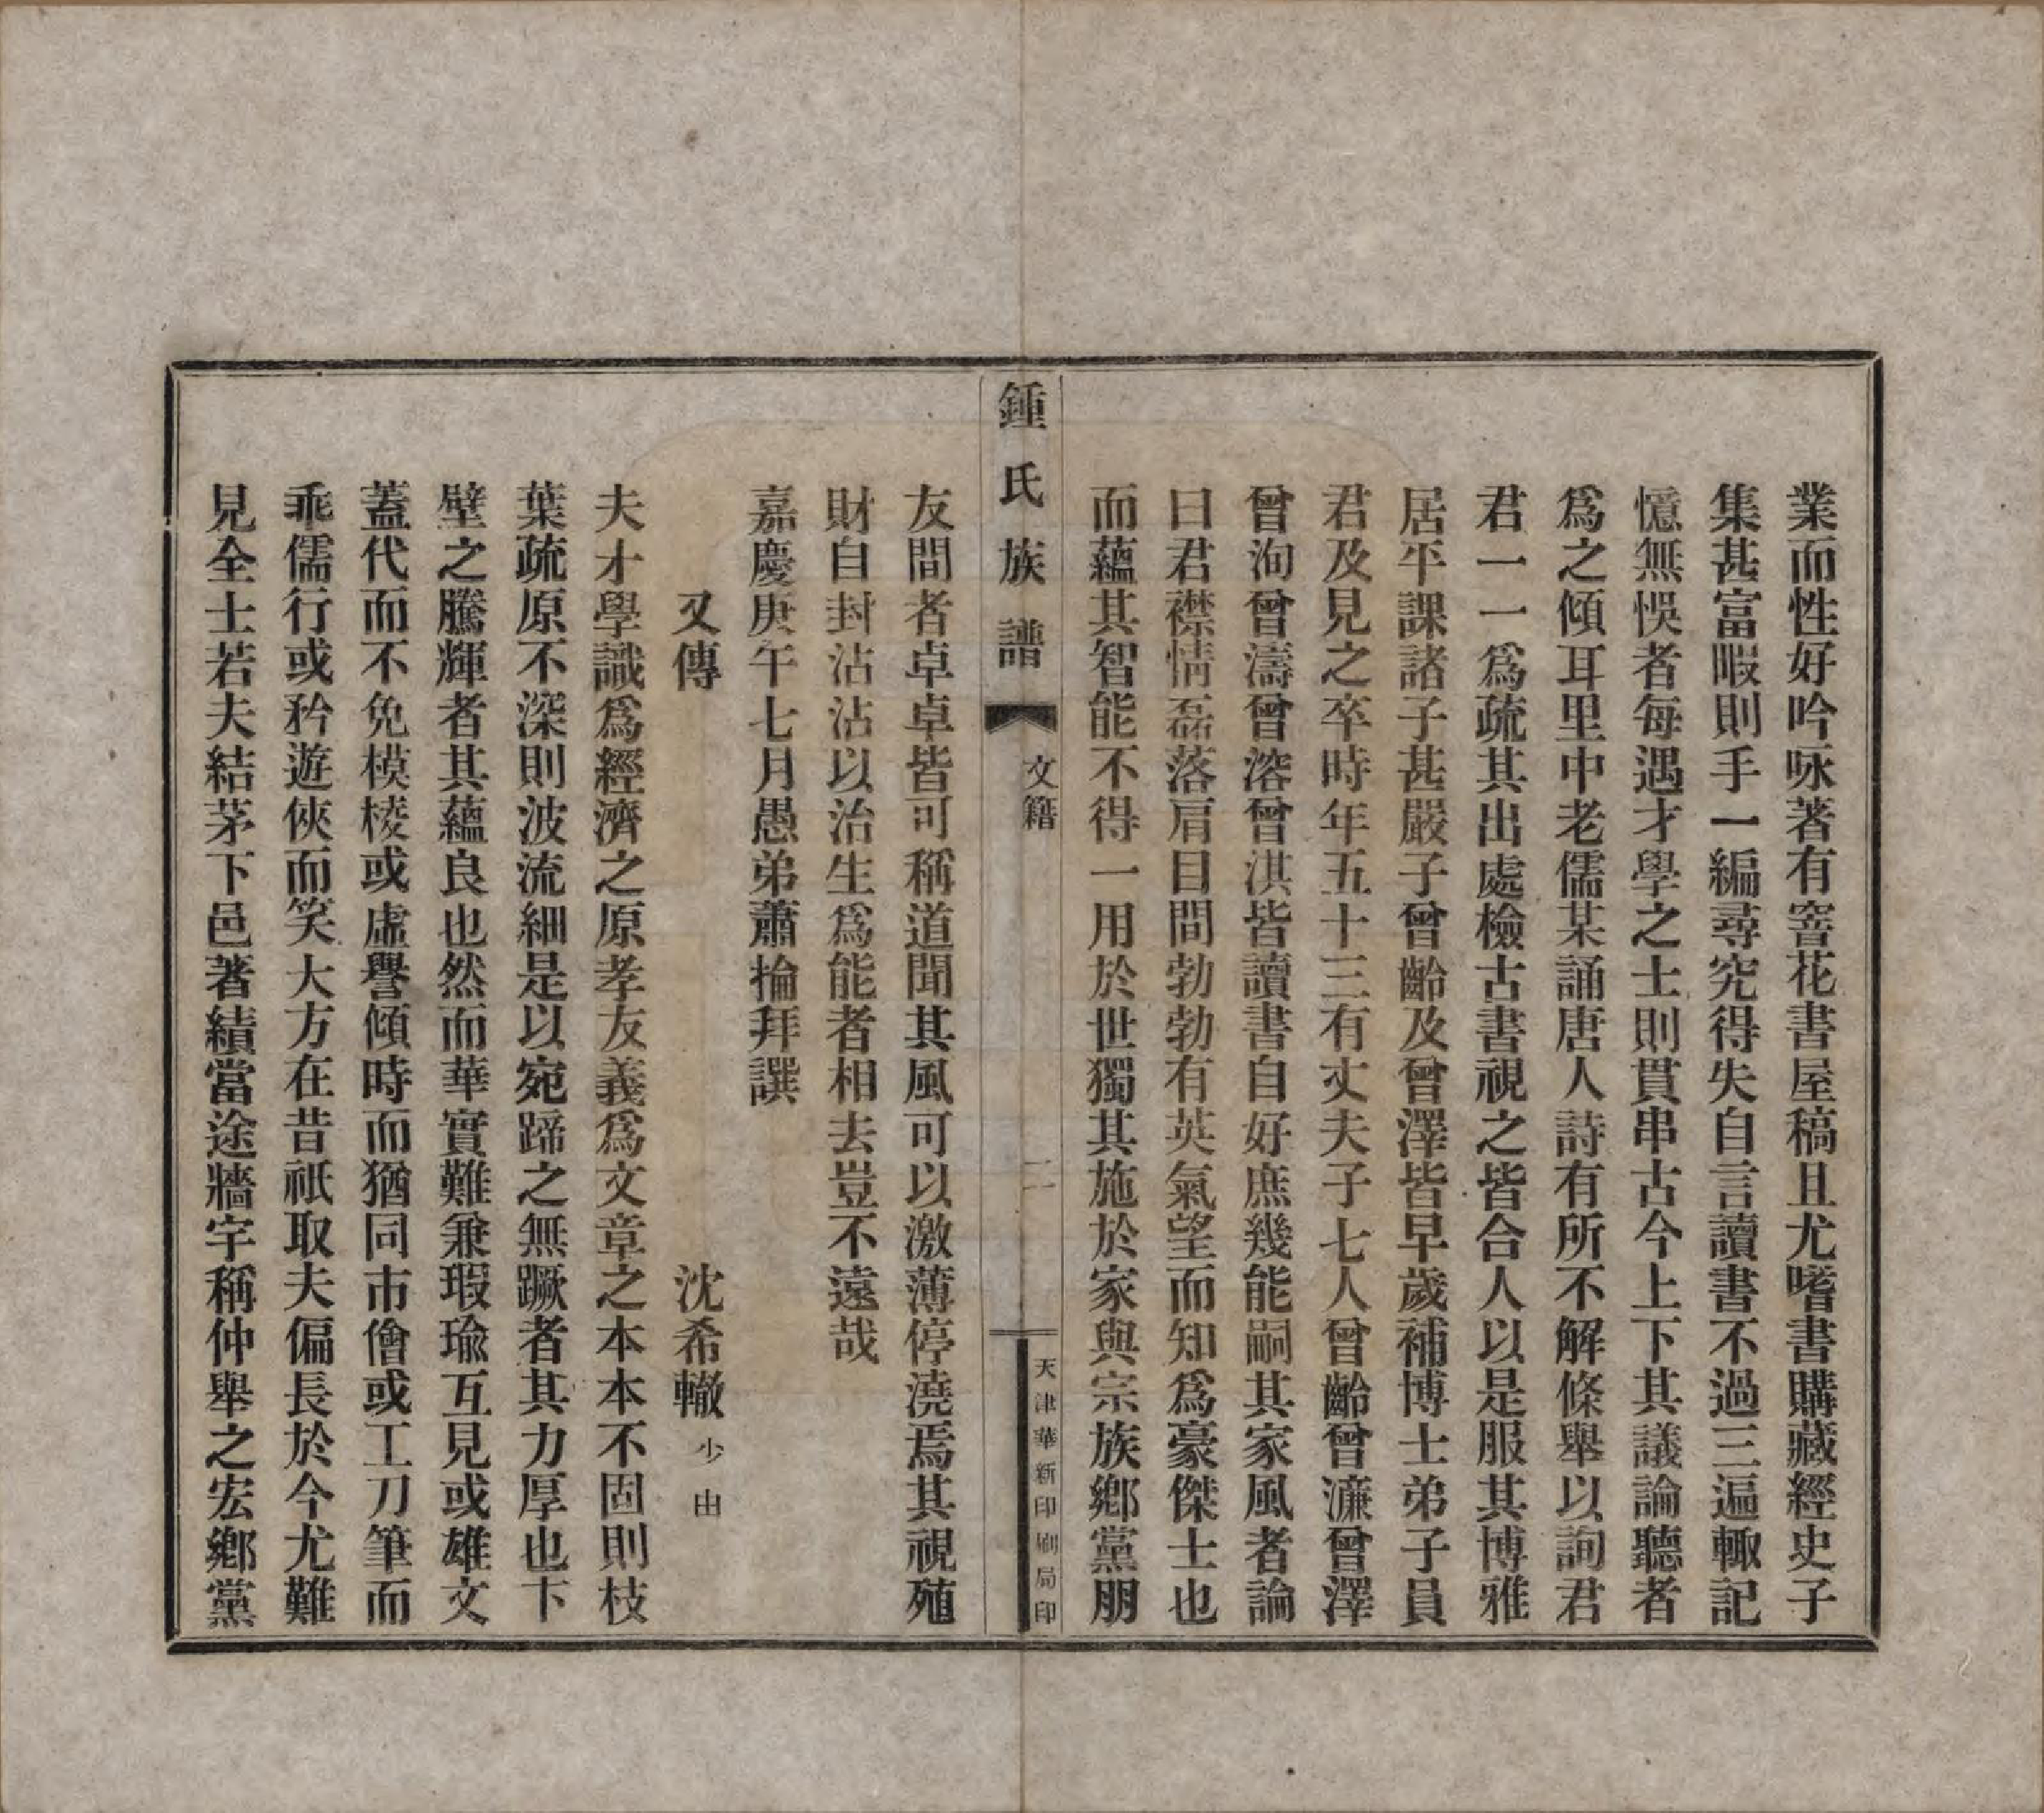 業而性好吟咏著有窖花書屋稿且尤嗜書購藏經史子
集甚富暇則手一編尋究得失自言讀書不過三遍輙記
憶無悞者每遇才學之士則貫串古今上下其議論聽者
爲之傾耳里中老儒某誦唐人詩有所不解條舉以詢君
君一一爲疏其出處檢古書視之皆合人以是服其博雅
居平課諸子甚嚴子曾齡及曾澤皆早歲補博士弟子員
君及見之卒時年五十三有丈夫子七人曾齡曾濂曾澤
曾洵曾濤曾溶曾淇皆讀書自好庶幾能嗣其家風者論
曰君襟情磊落眉目間勃勃有英氣望而知爲豪傑士也
而蘊其智能不得一用於世獨其施於家與宗族鄉黨朋
鍾氏族譜
文籍
二一
天津華新印刷局印
友間者卓卓皆可稱道聞其風可以激薄停澆焉其視殖
財自封沾沾以治生爲能者相去豈不遠哉
嘉慶庚午七月愚弟蕭掄拜譔
又傳
沈希轍 少由
夫才學識爲經濟之原孝友義爲文章之本本不固則枝
葉疏原不深則波流細是以宛蹄之無蹶者其力厚也卞
壁之騰輝者其蘊良也然而華實難兼瑕瑜互見或雄文
蓋代而不免模棱或虛譽傾時而猶同市儈或工刀筆而
乖儒行或矜遊俠而笑大方在昔祇取夫偏長於今尤難
見全士若夫結茅下邑著績當途牆宇稱仲舉之宏鄉黨